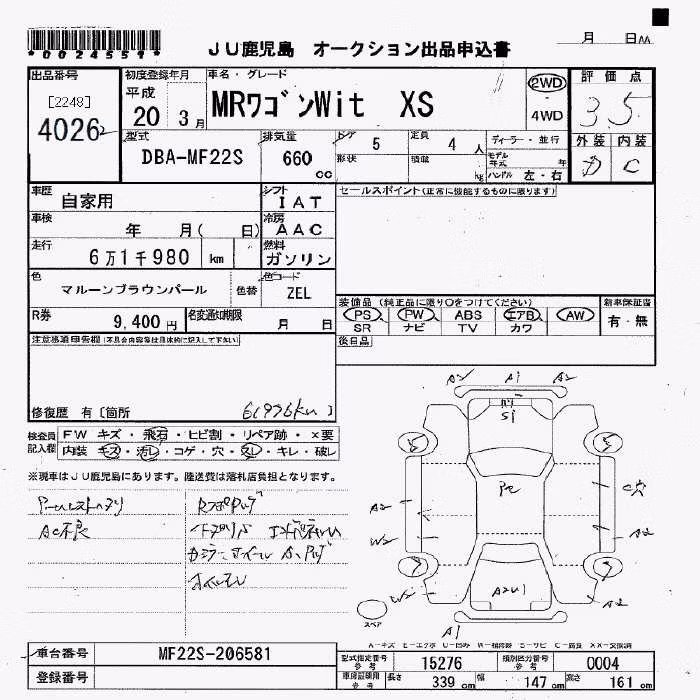 *0024559*
JU鹿児島 オークション出品申込書
月 日AA
出品番号 初度登録年月 車名・グレード 2WD 評価点
[2248] 平成 MRワゴンWit XS 3.5
4026 20 3月 4WD 外装 内装
型式 排気量 ドア 5 定員 4人 ディーラー・並行 D C
DBA-MF22S 660cc 形状 積載 kg モデル年式 年
ハンドル 左・右
車歴 自家用 シフト IAT セールスポイント(正常に機能するものに限ります)
車検 年 月( 日) 冷房 AAC
走行 6万1千980 km 燃料 ガソリン
色 マルーンブラウンパール 色替 色コード ZEL
装備品(純正品に限り○をつけてください) 新車保証書
R券 9,400円 名変通知期限 月 日 PS PW ABS エアB AW 有・無
SR ナビ TV カワ
注意事項申告欄(不具合内容等は具体的に記入して下さい) 後日品
修復歴 有〔箇所 61976km 〕
検査員記入欄 FW キズ・飛石・ヒビ割・リペア跡・×要
内装 キズ・汚レ・コゲ・穴・スレ・キレ・破レ
※現車はJU鹿児島にあります。陸送費は落札店負担となります。
AC不良
A2 A1 A2
S1
5 5
PC
A2 C穴
W2 A2
5 5
W2 A2U1
A2
スペア
A-キズ E-エクボ U-凹み W-補修跡 S-サビ C-腐食 XX-交換済
車台番号 MF22S-206581 型式指定番号 参考 15276 類別区分番号 参考 0004
登録番号 参考 長さ 339cm 幅 147cm 高さ 161cm